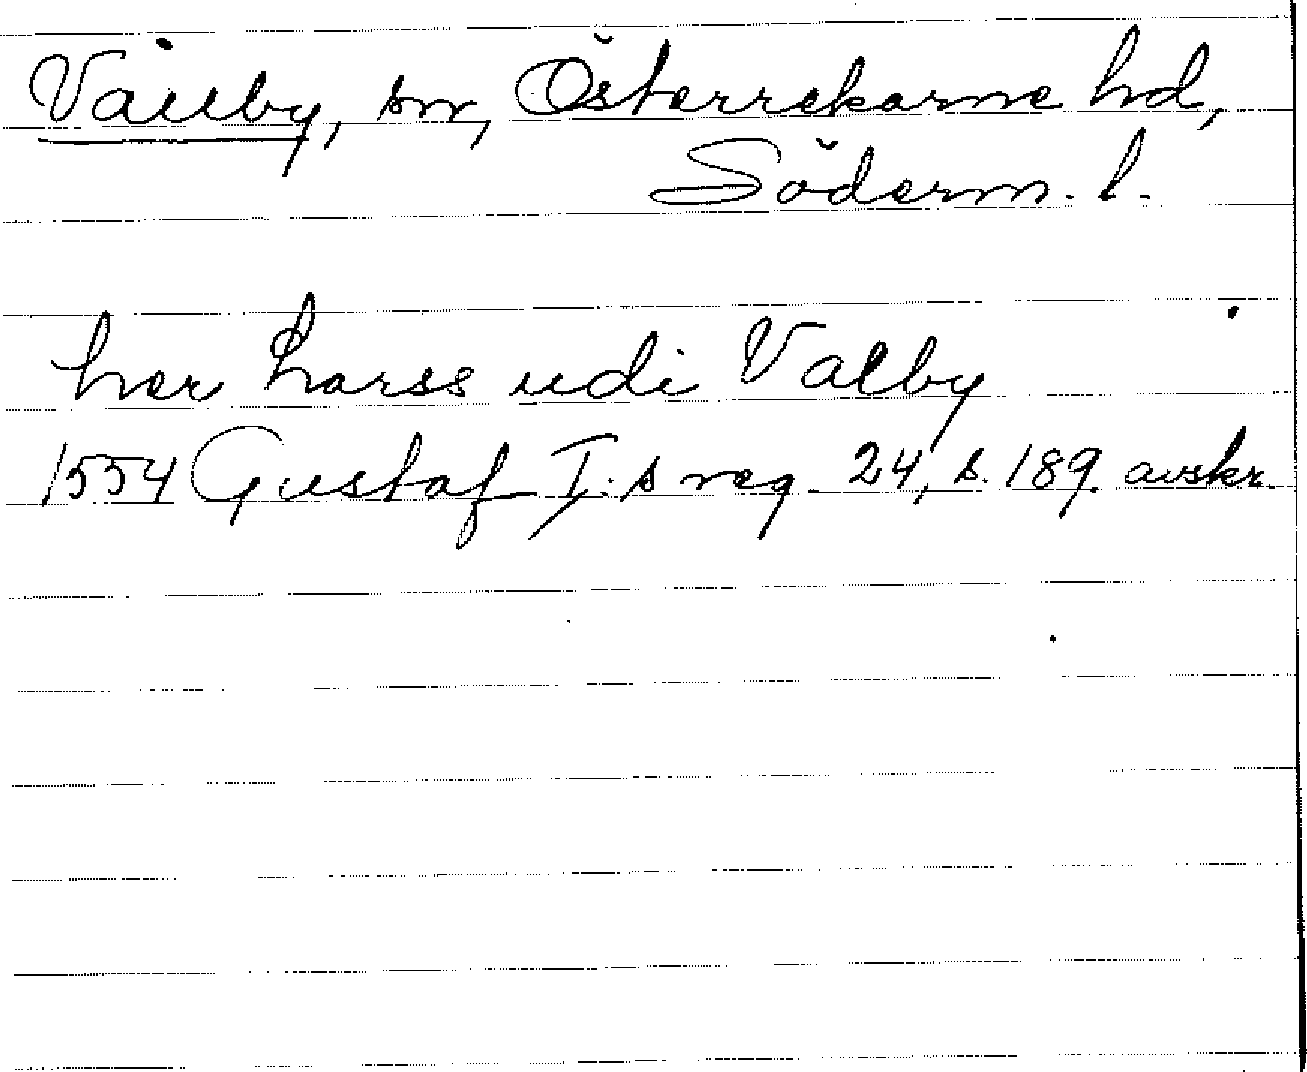 Vallby, sn, Österrekarne hd,
Söderm. l.
her Larss udi Valby
1554 Gustaf I:s reg. 24, s. 189. avskr.